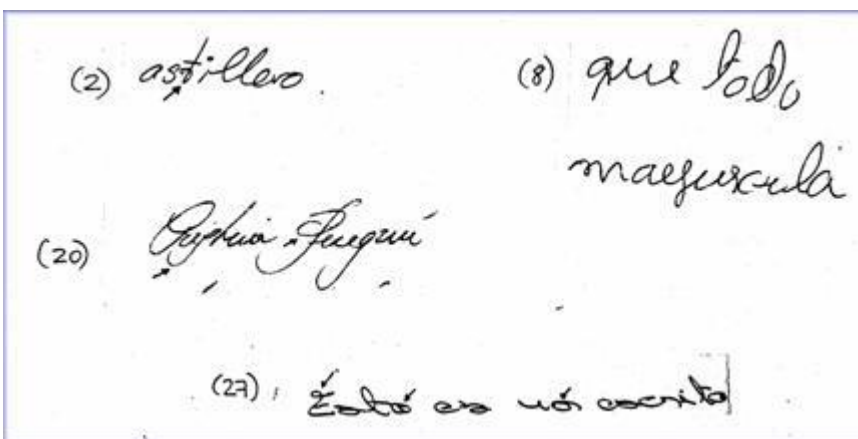 (2) astillero.
(8) que todo
mayuscula
(20)
(27) Esto es un escrito